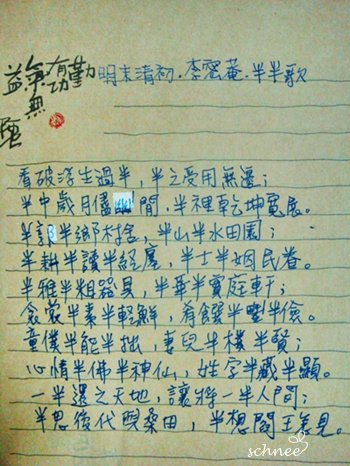 勤有功
無益
明末清初．李密菴．半半歌
看破浮生過半，半之受用無邊；
半中歲月儘間，半裡乾坤寬展。
半郭半鄉村舍，半山半水田園；
半耕半讀半經廛，半士半姻民眷。
半雅半粗器具，半華半實庭軒；
衾裳半素半輕鮮，肴饌半豐半儉。
童僕半能半拙，妻兒半樸半賢；
心情半佛半神仙，姓字半藏半顯。
一半還之天地，讓將一半人間；
半思後代與桑田，半想閻王見。
schnee